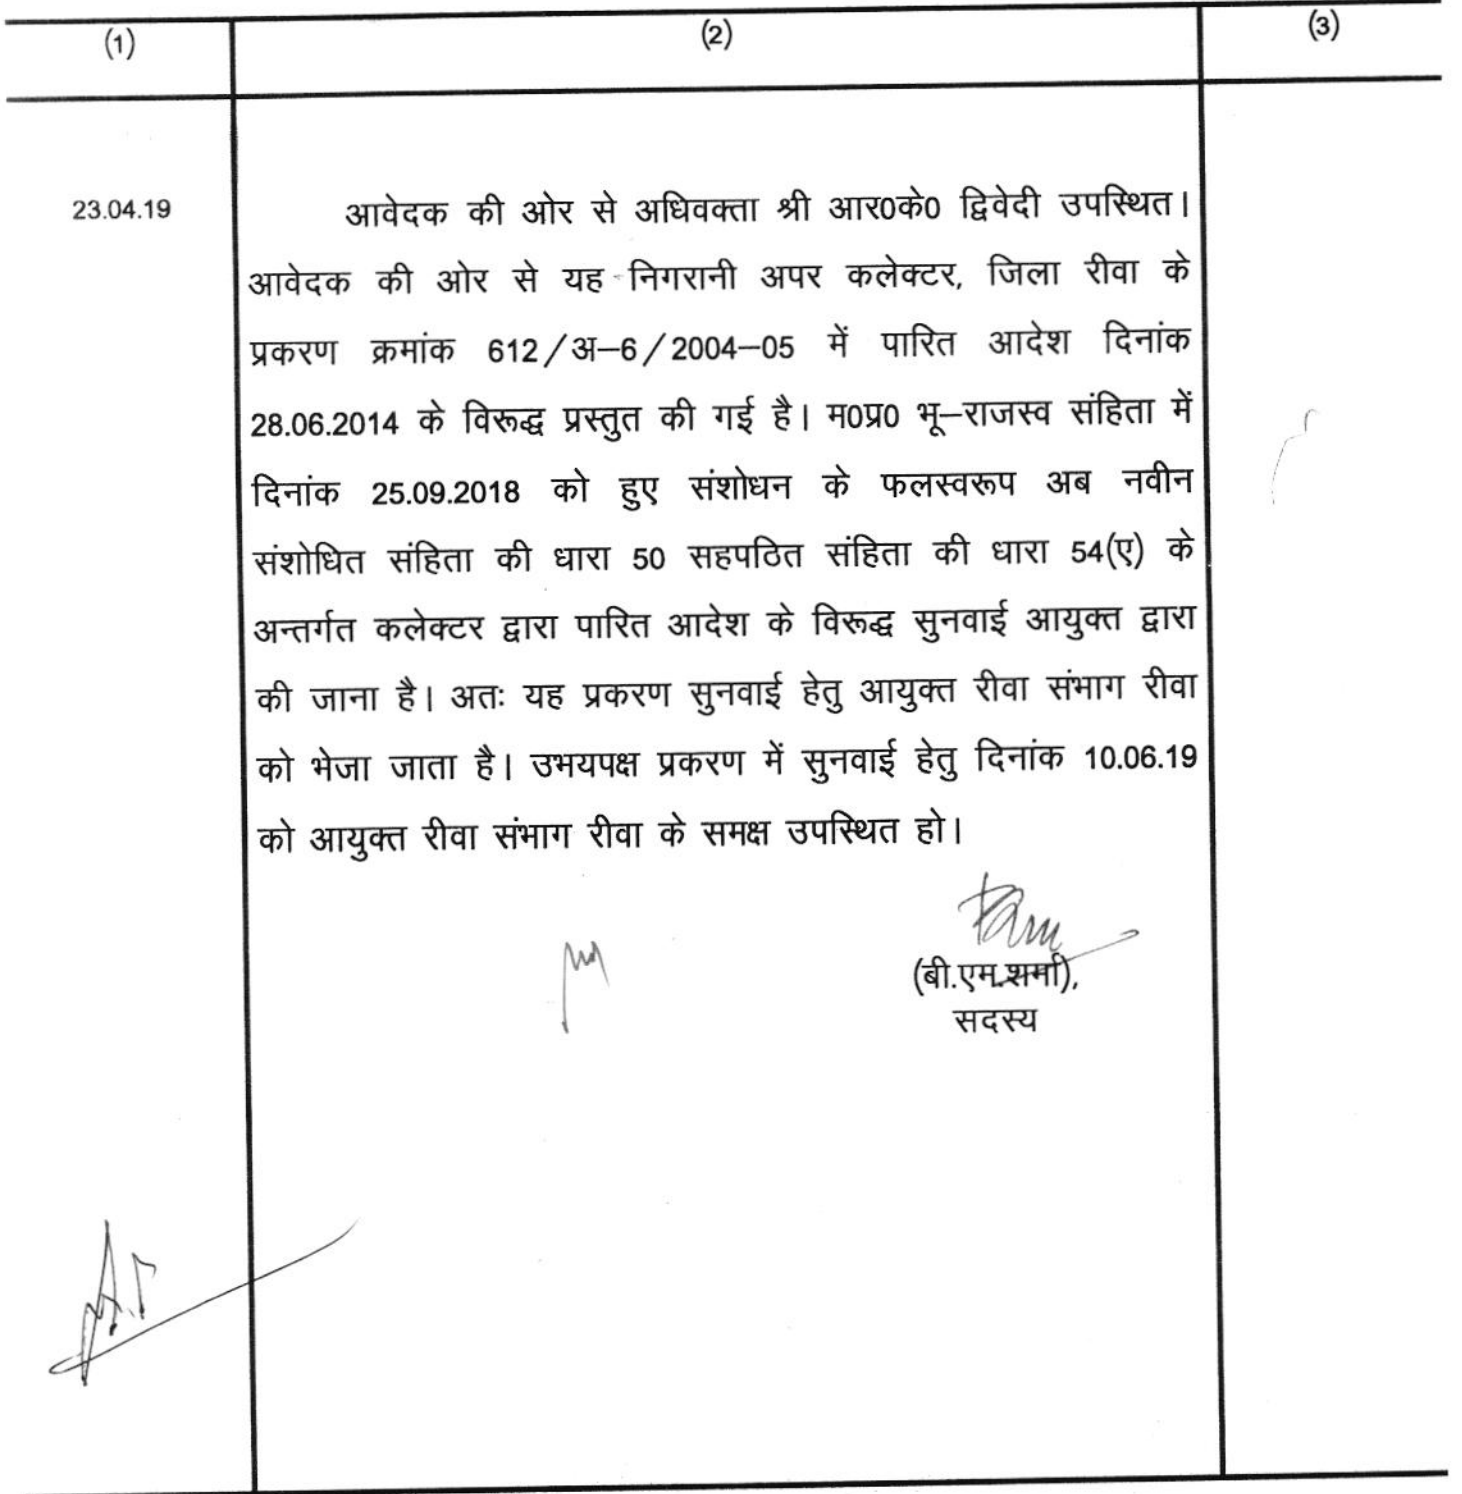 (1) (2) (3)
23.04.19 आवेदक की ओर से अधिवक्ता श्री आर0के0 द्विवेदी उपस्थित।
आवेदक की ओर से यह निगरानी अपर कलेक्टर, जिला रीवा के
प्रकरण क्रमांक 612/अ–6/2004–05 में पारित आदेश दिनांक
28.06.2014 के विरूद्ध प्रस्तुत की गई है। म0प्र0 भू–राजस्व संहिता में
दिनांक 25.09.2018 को हुए संशोधन के फलस्वरूप अब नवीन
संशोधित संहिता की धारा 50 सहपठित संहिता की धारा 54(ए) के
अन्तर्गत कलेक्टर द्वारा पारित आदेश के विरूद्ध सुनवाई आयुक्त द्वारा
की जाना है। अतः यह प्रकरण सुनवाई हेतु आयुक्त रीवा संभाग रीवा
को भेजा जाता है। उभयपक्ष प्रकरण में सुनवाई हेतु दिनांक 10.06.19
को आयुक्त रीवा संभाग रीवा के समक्ष उपस्थित हो।
(बी.एम.शर्मा),
सदस्य